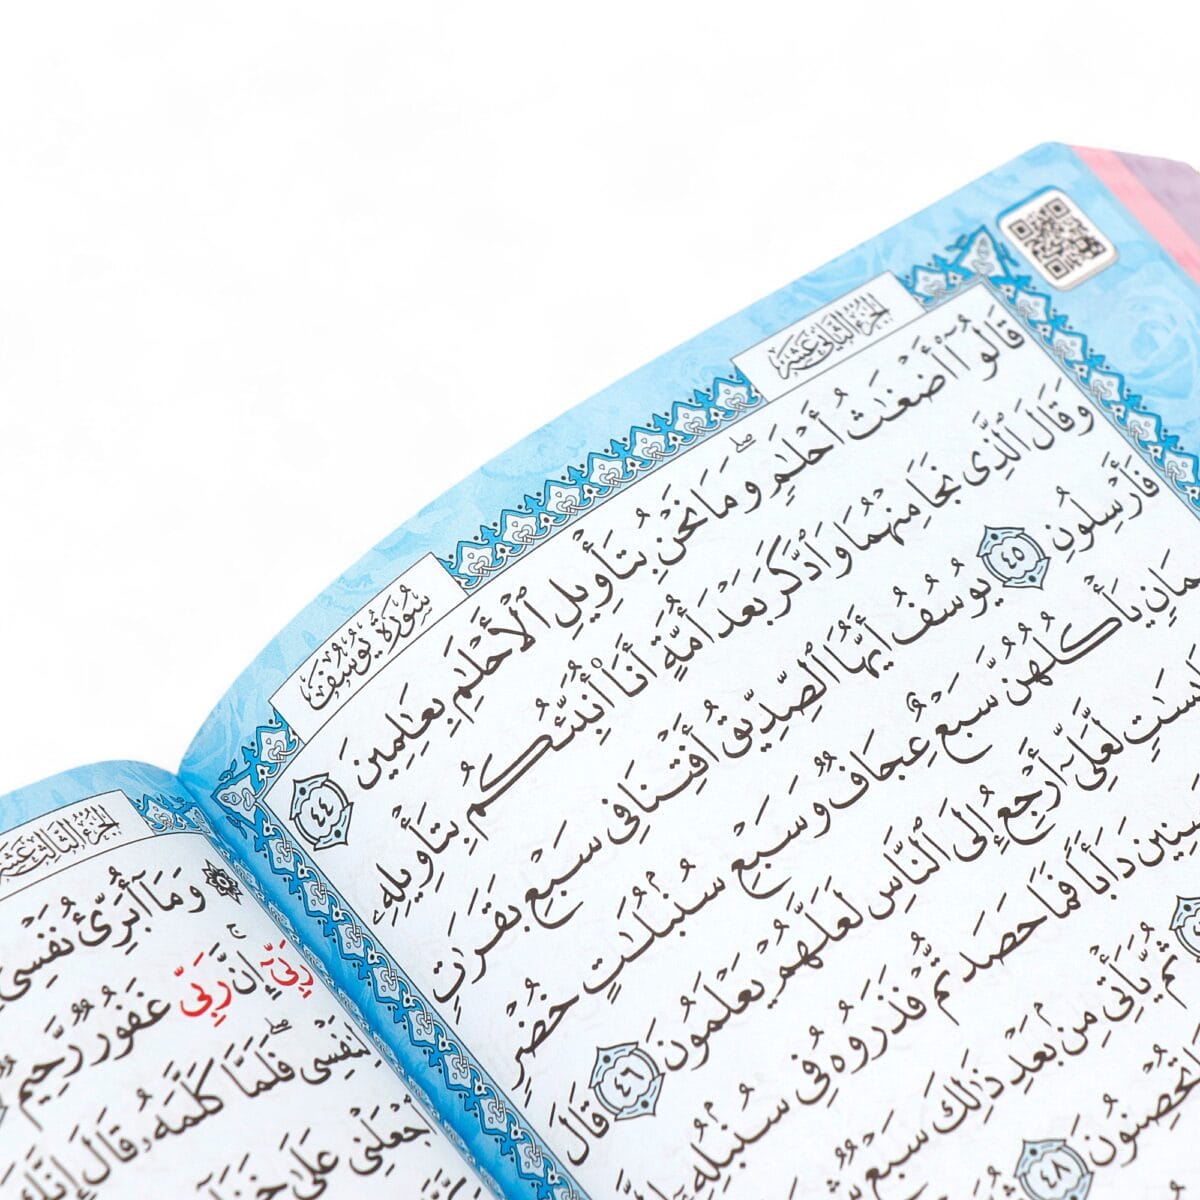 الجزء الثاني عشر
سورة يوسف
قَالُوٓا۟ أَضْغَٰثُ أَحْلَٰمٍ ۖ وَمَا نَحْنُ بِتَأْوِيلِ ٱلْأَحْلَٰمِ بِعَٰلِمِينَ ٤٤
وَقَالَ ٱلَّذِى نَجَا مِنْهُمَا وَٱدَّكَرَ بَعْدَ أُمَّةٍ أَنَا۠ أُنَبِّئُكُم بِتَأْوِيلِهِۦ
فَأَرْسِلُونِ ٤٥ يُوسُفُ أَيُّهَا ٱلصِّدِّيقُ أَفْتِنَا فِى سَبْعِ بَقَرَٰتٍ
يَأْكُلُهُنَّ سَبْعٌ عِجَافٌ وَسَبْعِ سُنۢبُلَٰتٍ خُضْرٍ
لَّعَلِّىٓ أَرْجِعُ إِلَى ٱلنَّاسِ لَعَلَّهُمْ يَعْلَمُونَ ٤٦ قَالَ
دَأَبًا فَمَا حَصَدتُّمْ فَذَرُوهُ فِى سُنۢبُلِهِۦٓ
ثُمَّ يَأْتِى مِنۢ بَعْدِ ذَٰلِكَ سَبْعٌ
تُحْصِنُونَ ٤٨
الجزء الثالث عشر
وَمَآ أُبَرِّئُ نَفْسِىٓ
رَبِّىٓ ۚ إِنَّ رَبِّى غَفُورٌ رَّحِيمٌ
لِنَفْسِى ۖ فَلَمَّا كَلَّمَهُۥ قَالَ إِنَّكَ
ٱجْعَلْنِى عَلَىٰ